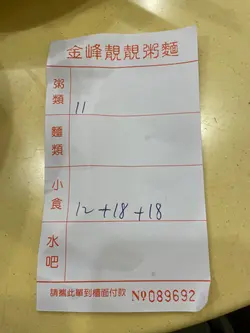 金峰靚靚粥麵
粥類 11
麵類
小食 12+18+18
水吧
請攜此單到櫃面付款 Nº 089692